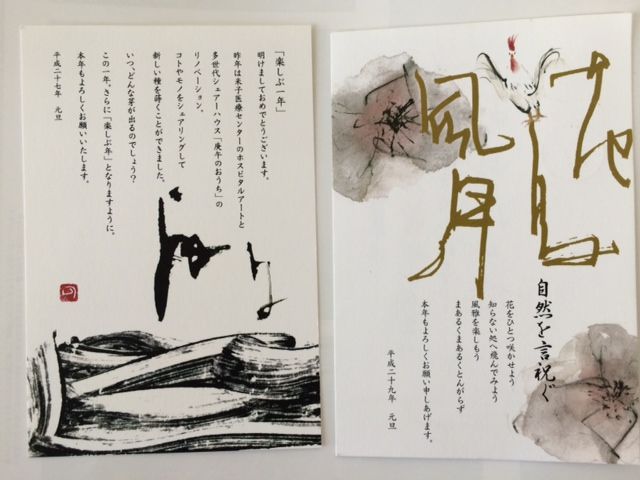 「楽しぶ一年」
明けましておめでとうございます。
昨年は米子医療センターのホスピタルアートと
多世代シェアーハウス「庚午のおうち」の
リノベーション、
コトやモノをシェアリングして
新しい種を蒔くことができました。
いつ、どんな芽が出るのでしょう？
この一年、さらに「楽しぶ年」となりますように。
本年もよろしくお願いいたします。
平成二十七年　元旦
花鳥
風月
自然を言祝ぐ
花をひとつ咲かせよう
知らない処へ飛んでみよう
風雅を楽しもう
まあるくまあるくとんがらず
本年もよろしくお願い申しあげます。
平成二十九年　元旦